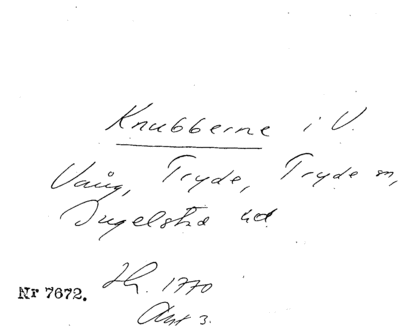 Knubberne i V.
Vång, Tryde, Tryde sn,
Ingelstad hd
Nr 7672.
1770
Akt 3.